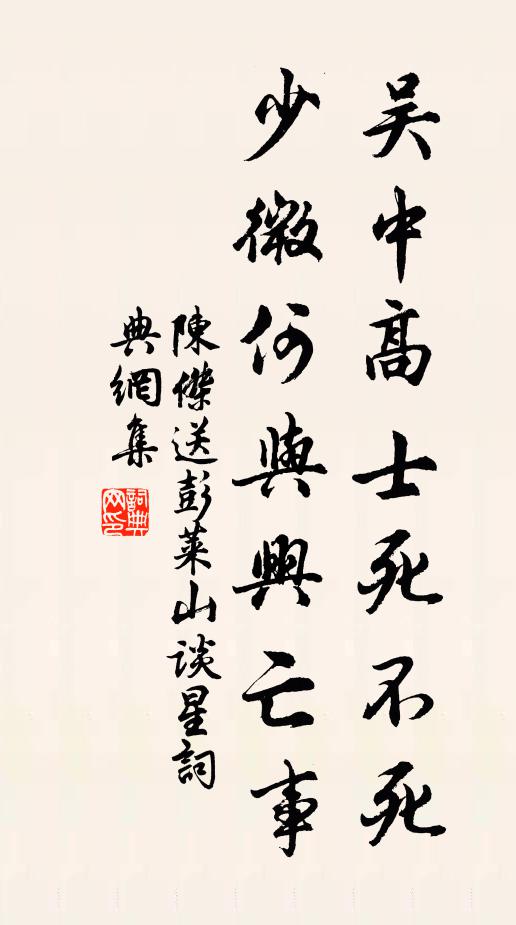 吴中高士死不死
少微何與興亡事
陳傑送彭萊山談星詞
典網集
詞典網印